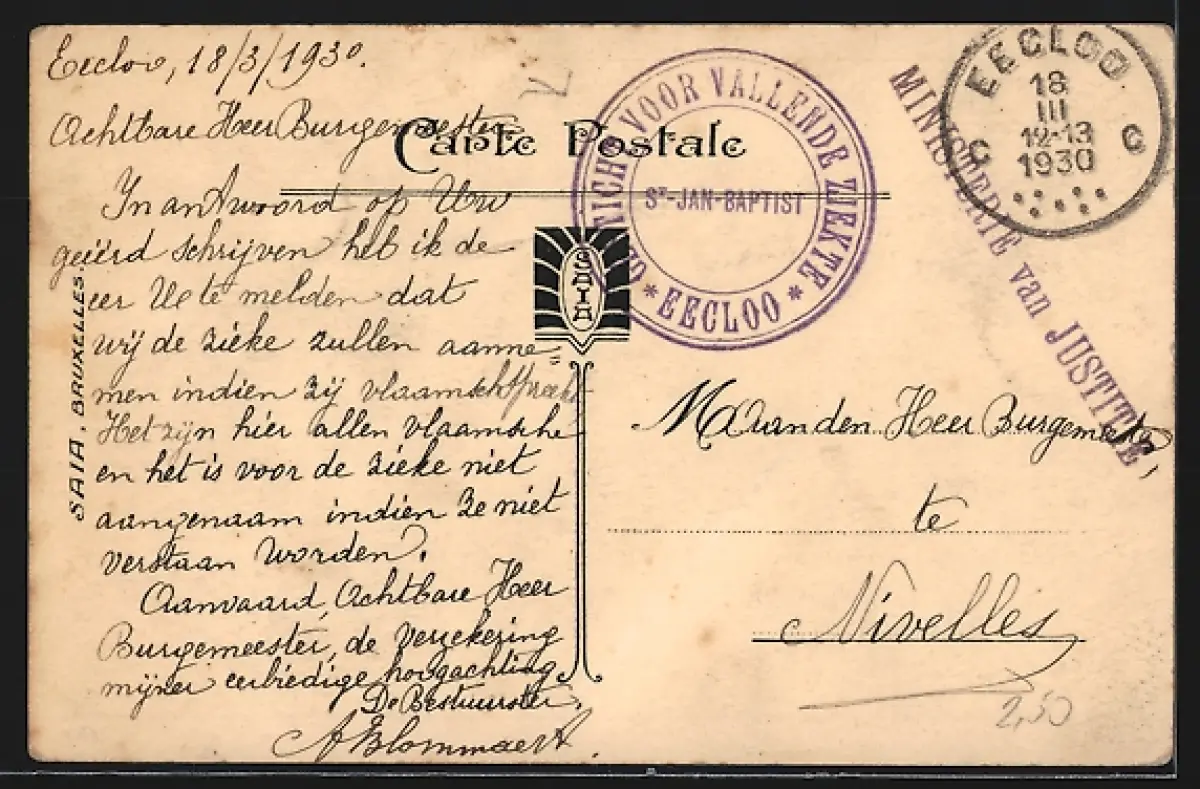 Eecloo, 18/3/1930.
Achtbare Heer Burgemeester
In antwoord op Uw
geëerd schrijven heb ik de
eer Ue te melden dat
wij de zieke zullen aanne=
men indien zij vlaamsch spreekt
Het zijn hier allen vlaamsche
en het is voor de zieke niet
aangenaam indien ze niet
verstaan worden.
Aanvaard, Achtbare Heer
Burgemeester, de verzekering
mijner eerbiedige hoogachting
De Bestuurster,
A Blommaert.
Carte Postale
SAIA
SAIA, BRUXELLES.
GESTICHT VOOR VALLENDE ZIEKTE
ST-JAN-BAPTIST
* EECLOO *
EECLOO
18
III
12-13
1930
C C
MINISTERIE van JUSTITIE
Aan den Heer Burgemeester,
te
Nivelles
2,50